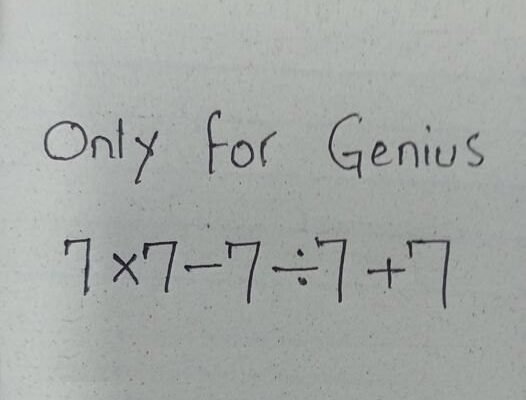 Only for Genius
7×7−7÷7+7